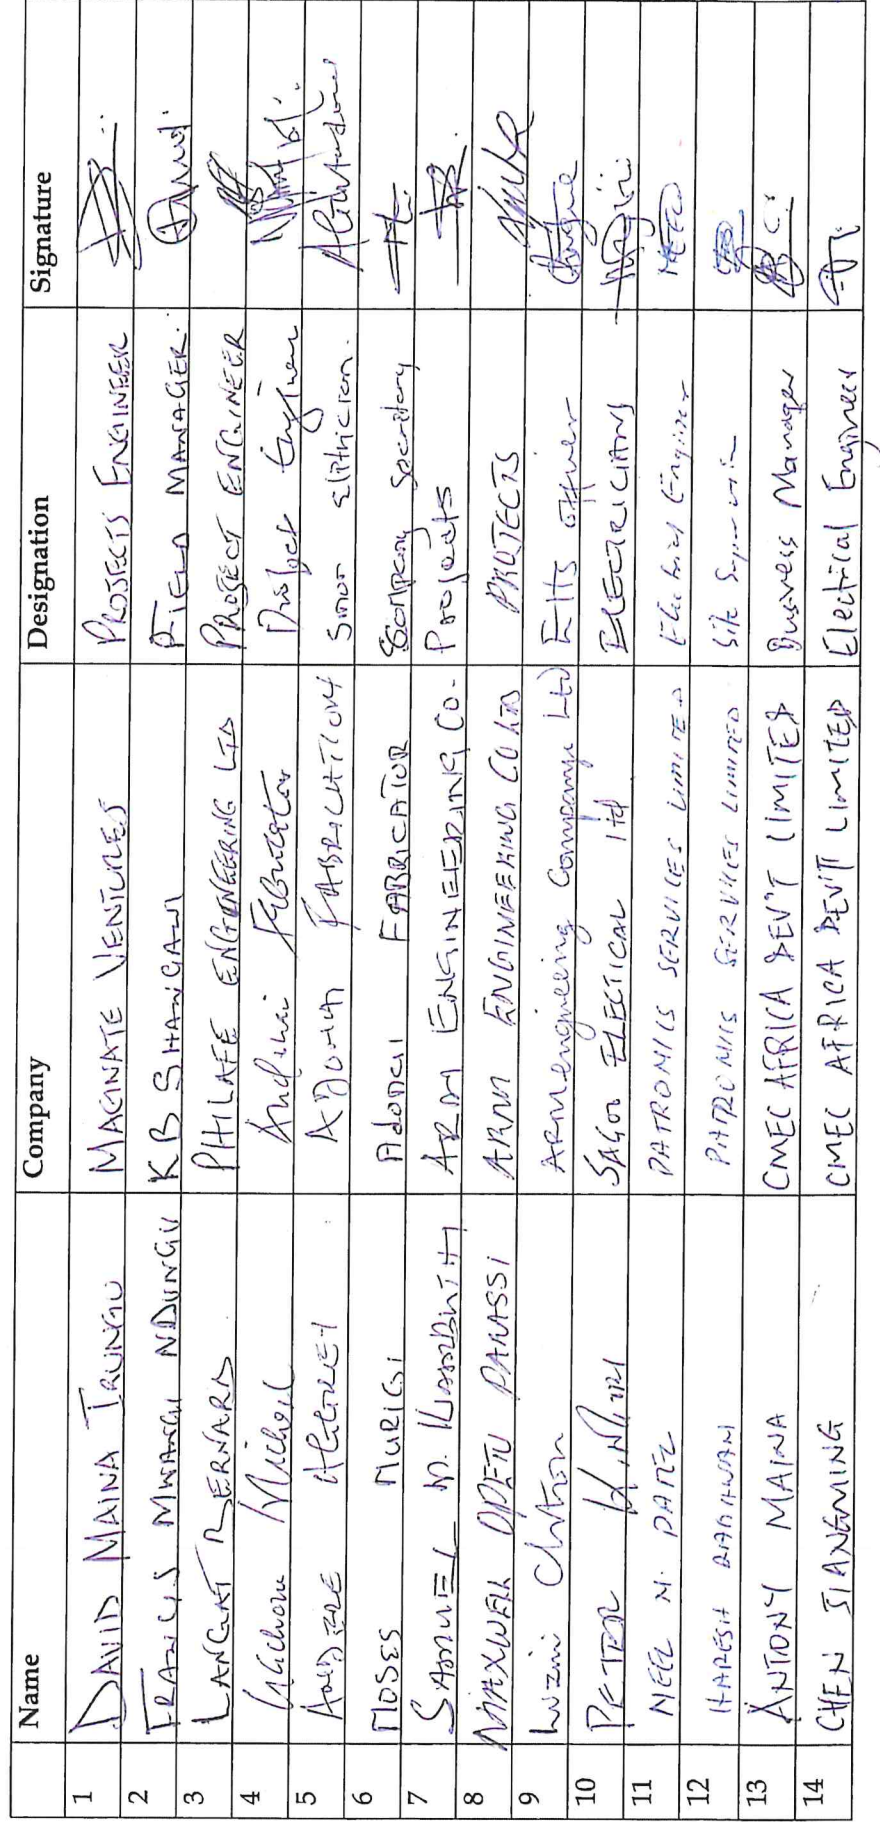 Name Company Designation Signature
1 DAVID MAINA IRUNGU MAGNATE VENTURES PROJECTS ENGINEER
2 FRANCIS MWANGI NDUNGU KB SHANGANI FIELD MANAGER.
3 LANGAT BERNARD PHILAFE ENGINEERING LTD PROJECT ENGINEER
4 Michael Fabricator Project Engineer
5 FABRICATION
6 MOSES MURIGI Adonai FABRICATOR Company Secretary
7 SAMUEL M. ARM ENGINEERING CO. Projects
8 MAXWELL ARM ENGINEERING CO LTD PROJECTS
9 Armengineering Company Ltd EHS officer
10 PETER ELECTICAL ltd ELECTRICIANS
11 NEEL M. PATEL PATRONICS SERVICES LIMITED Electrical Engineer
12 HARESH PATRONICS SERVICES LIMITED Site
13 ANTONY MAINA CMEC AFRICA DEV'T LIMITED Business Manager
14 CHEN JIANGMING CMEC AFRICA DEV'T LIMITED Electrical Engineer